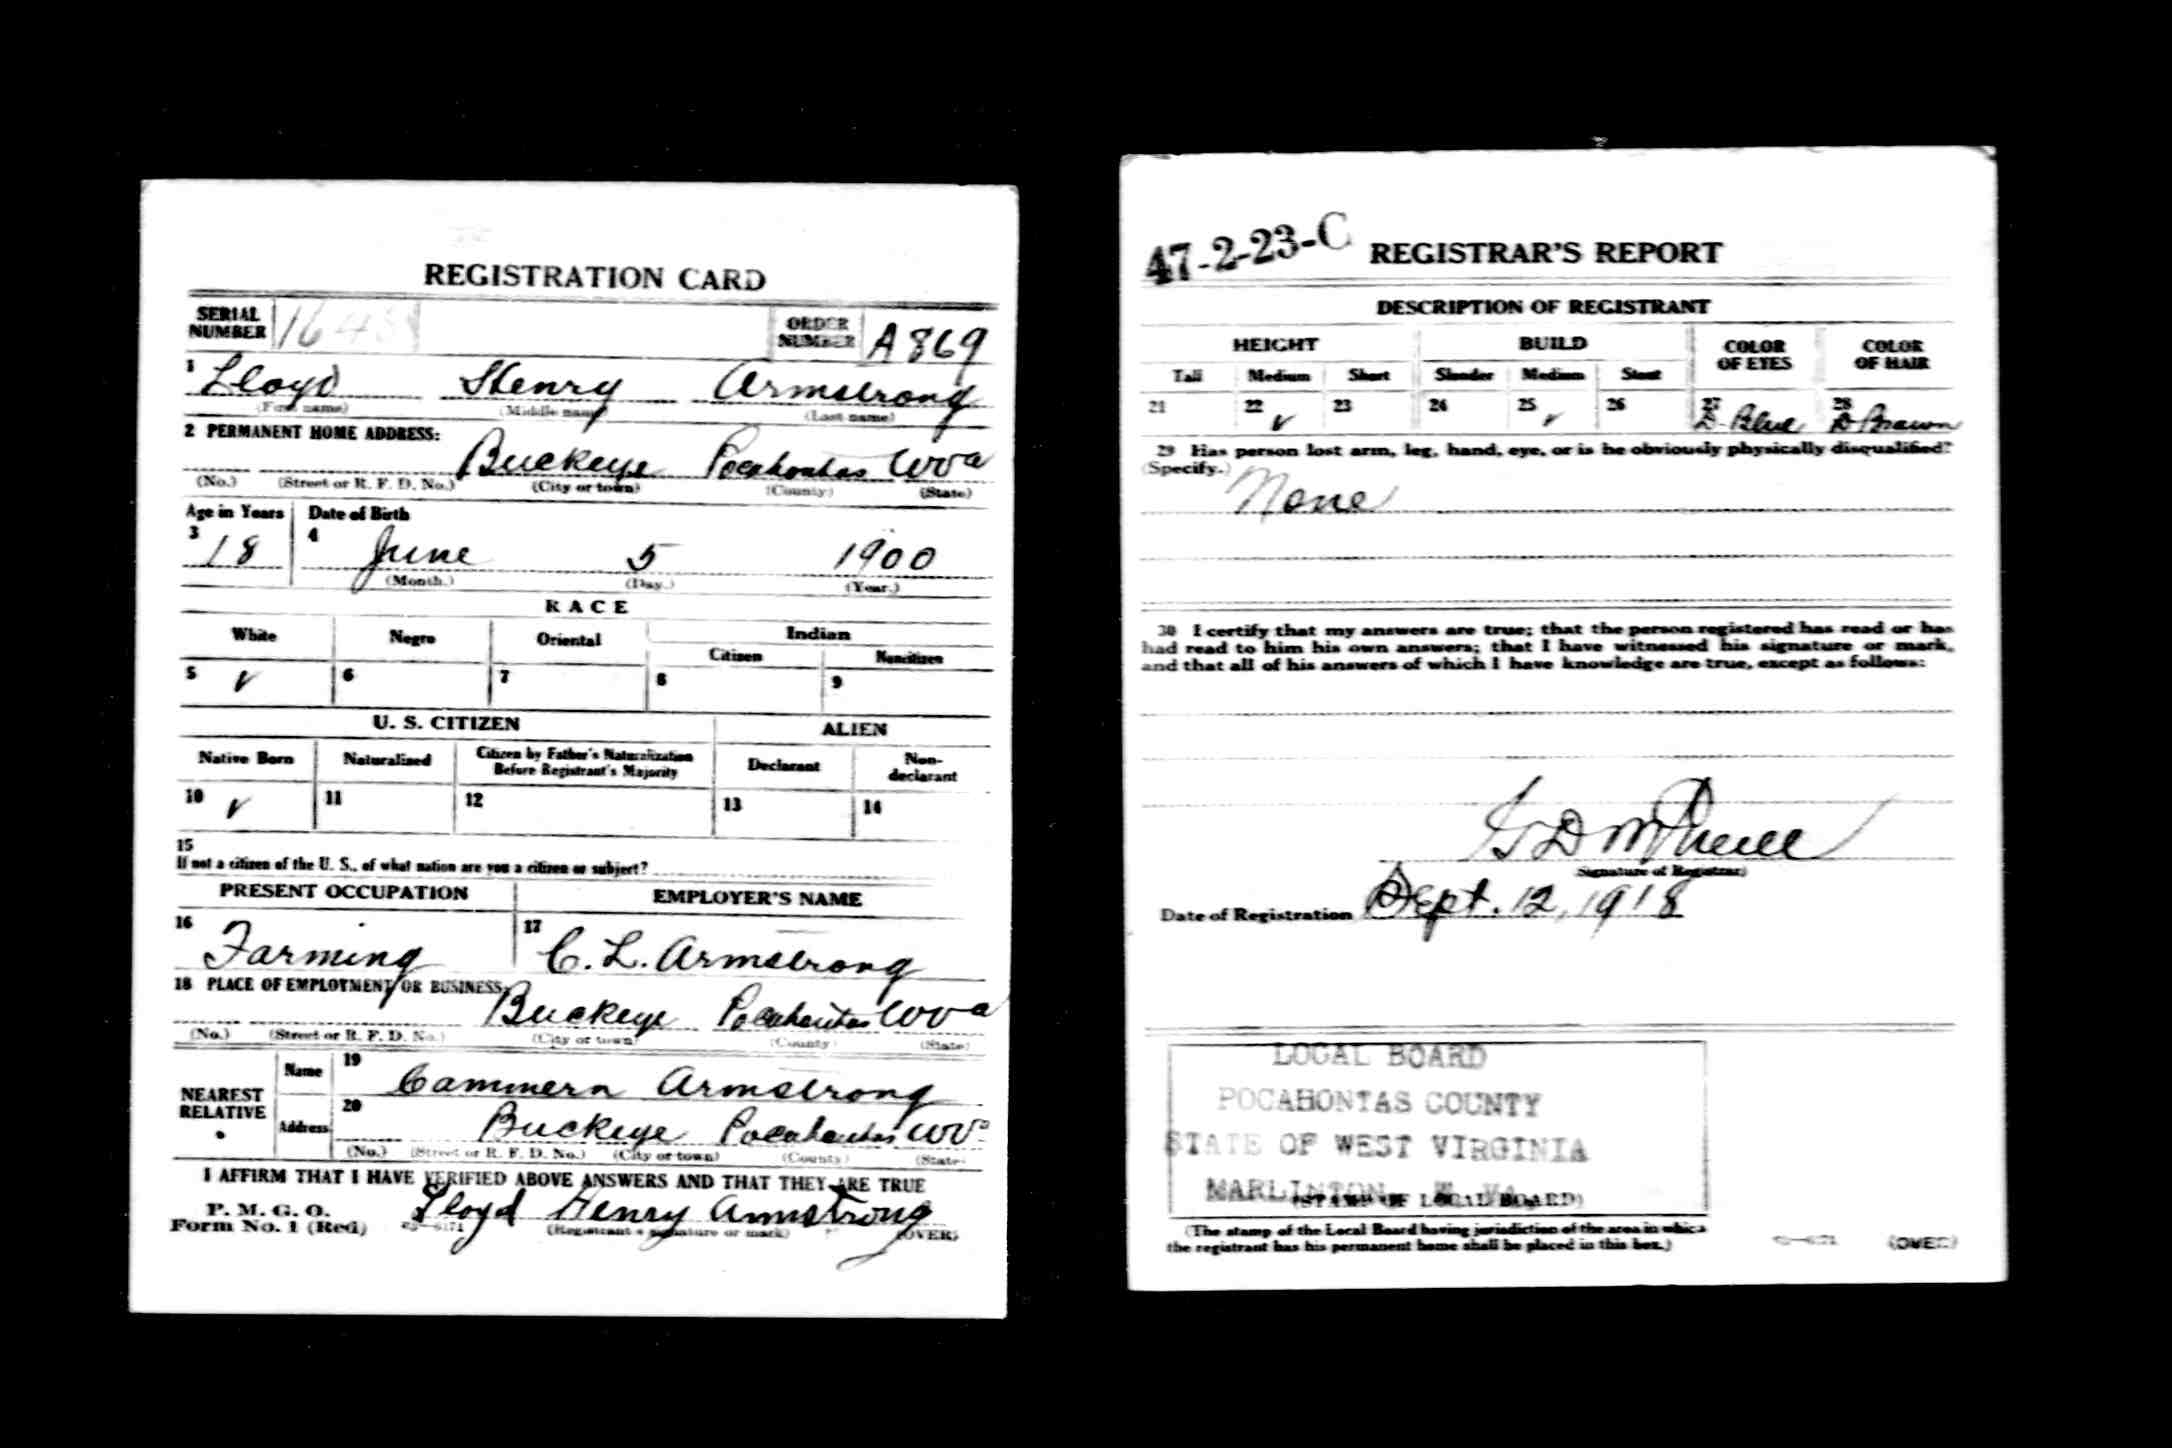 REGISTRATION CARD
SERIAL NUMBER ORDER NUMBER A869
1 Lloyd Henry Armstrong
(First name) (Middle name) (Last name)
2 PERMANENT HOME ADDRESS:
Buckeye Pocahontas WVa
(No.) (Street or R. F. D. No.) (City or town) (County) (State)
Age in Years Date of Birth
3 18 4 June 5 1900
(Month.) (Day.) (Year.)
RACE
White Negro Oriental Indian
Citizen Noncitizen
5 ✓ 6 7 8 9
U. S. CITIZEN ALIEN
Native Born Naturalized Citizen by Father's Naturalization Before Registrant's Majority Declarant Non-declarant
10 ✓ 11 12 13 14
15
If not a citizen of the U. S., of what nation are you a citizen or subject?
PRESENT OCCUPATION EMPLOYER'S NAME
16 Farming 17 C. L. Armstrong
18 PLACE OF EMPLOYMENT OR BUSINESS:
Buckeye Pocahontas WVa
(No.) (Street or R. F. D. No.) (City or town) (County) (State)
NEAREST RELATIVE Name 19 Cammern Armstrong
Address 20 Buckeye Pocahontas WVa
(No.) (Street or R. F. D. No.) (City or town) (County) (State)
I AFFIRM THAT I HAVE VERIFIED ABOVE ANSWERS AND THAT THEY ARE TRUE
P. M. G. O.
Form No. 1 (Red) Lloyd Henry Armstrong
(Registrant's signature or mark) (OVER)
47-2-23-C REGISTRAR'S REPORT
DESCRIPTION OF REGISTRANT
HEIGHT BUILD COLOR OF EYES COLOR OF HAIR
Tall Medium Short Slender Medium Stout
21 22 ✓ 23 24 25 ✓ 26 27 D. Blue 28 D Brown
29 Has person lost arm, leg, hand, eye, or is he obviously physically disqualified?
(Specify.)
None
30 I certify that my answers are true; that the person registered has read or has
had read to him his own answers; that I have witnessed his signature or mark,
and that all of his answers of which I have knowledge are true, except as follows:
D McNeill
(Signature of Registrar)
Date of Registration Sept. 12, 1918
LOCAL BOARD
POCAHONTAS COUNTY
STATE OF WEST VIRGINIA
MARLINTON, W. VA.
(STAMP OF LOCAL BOARD)
(The stamp of the Local Board having jurisdiction of the area in which
the registrant has his permanent home shall be placed in this box.)
(OVER)